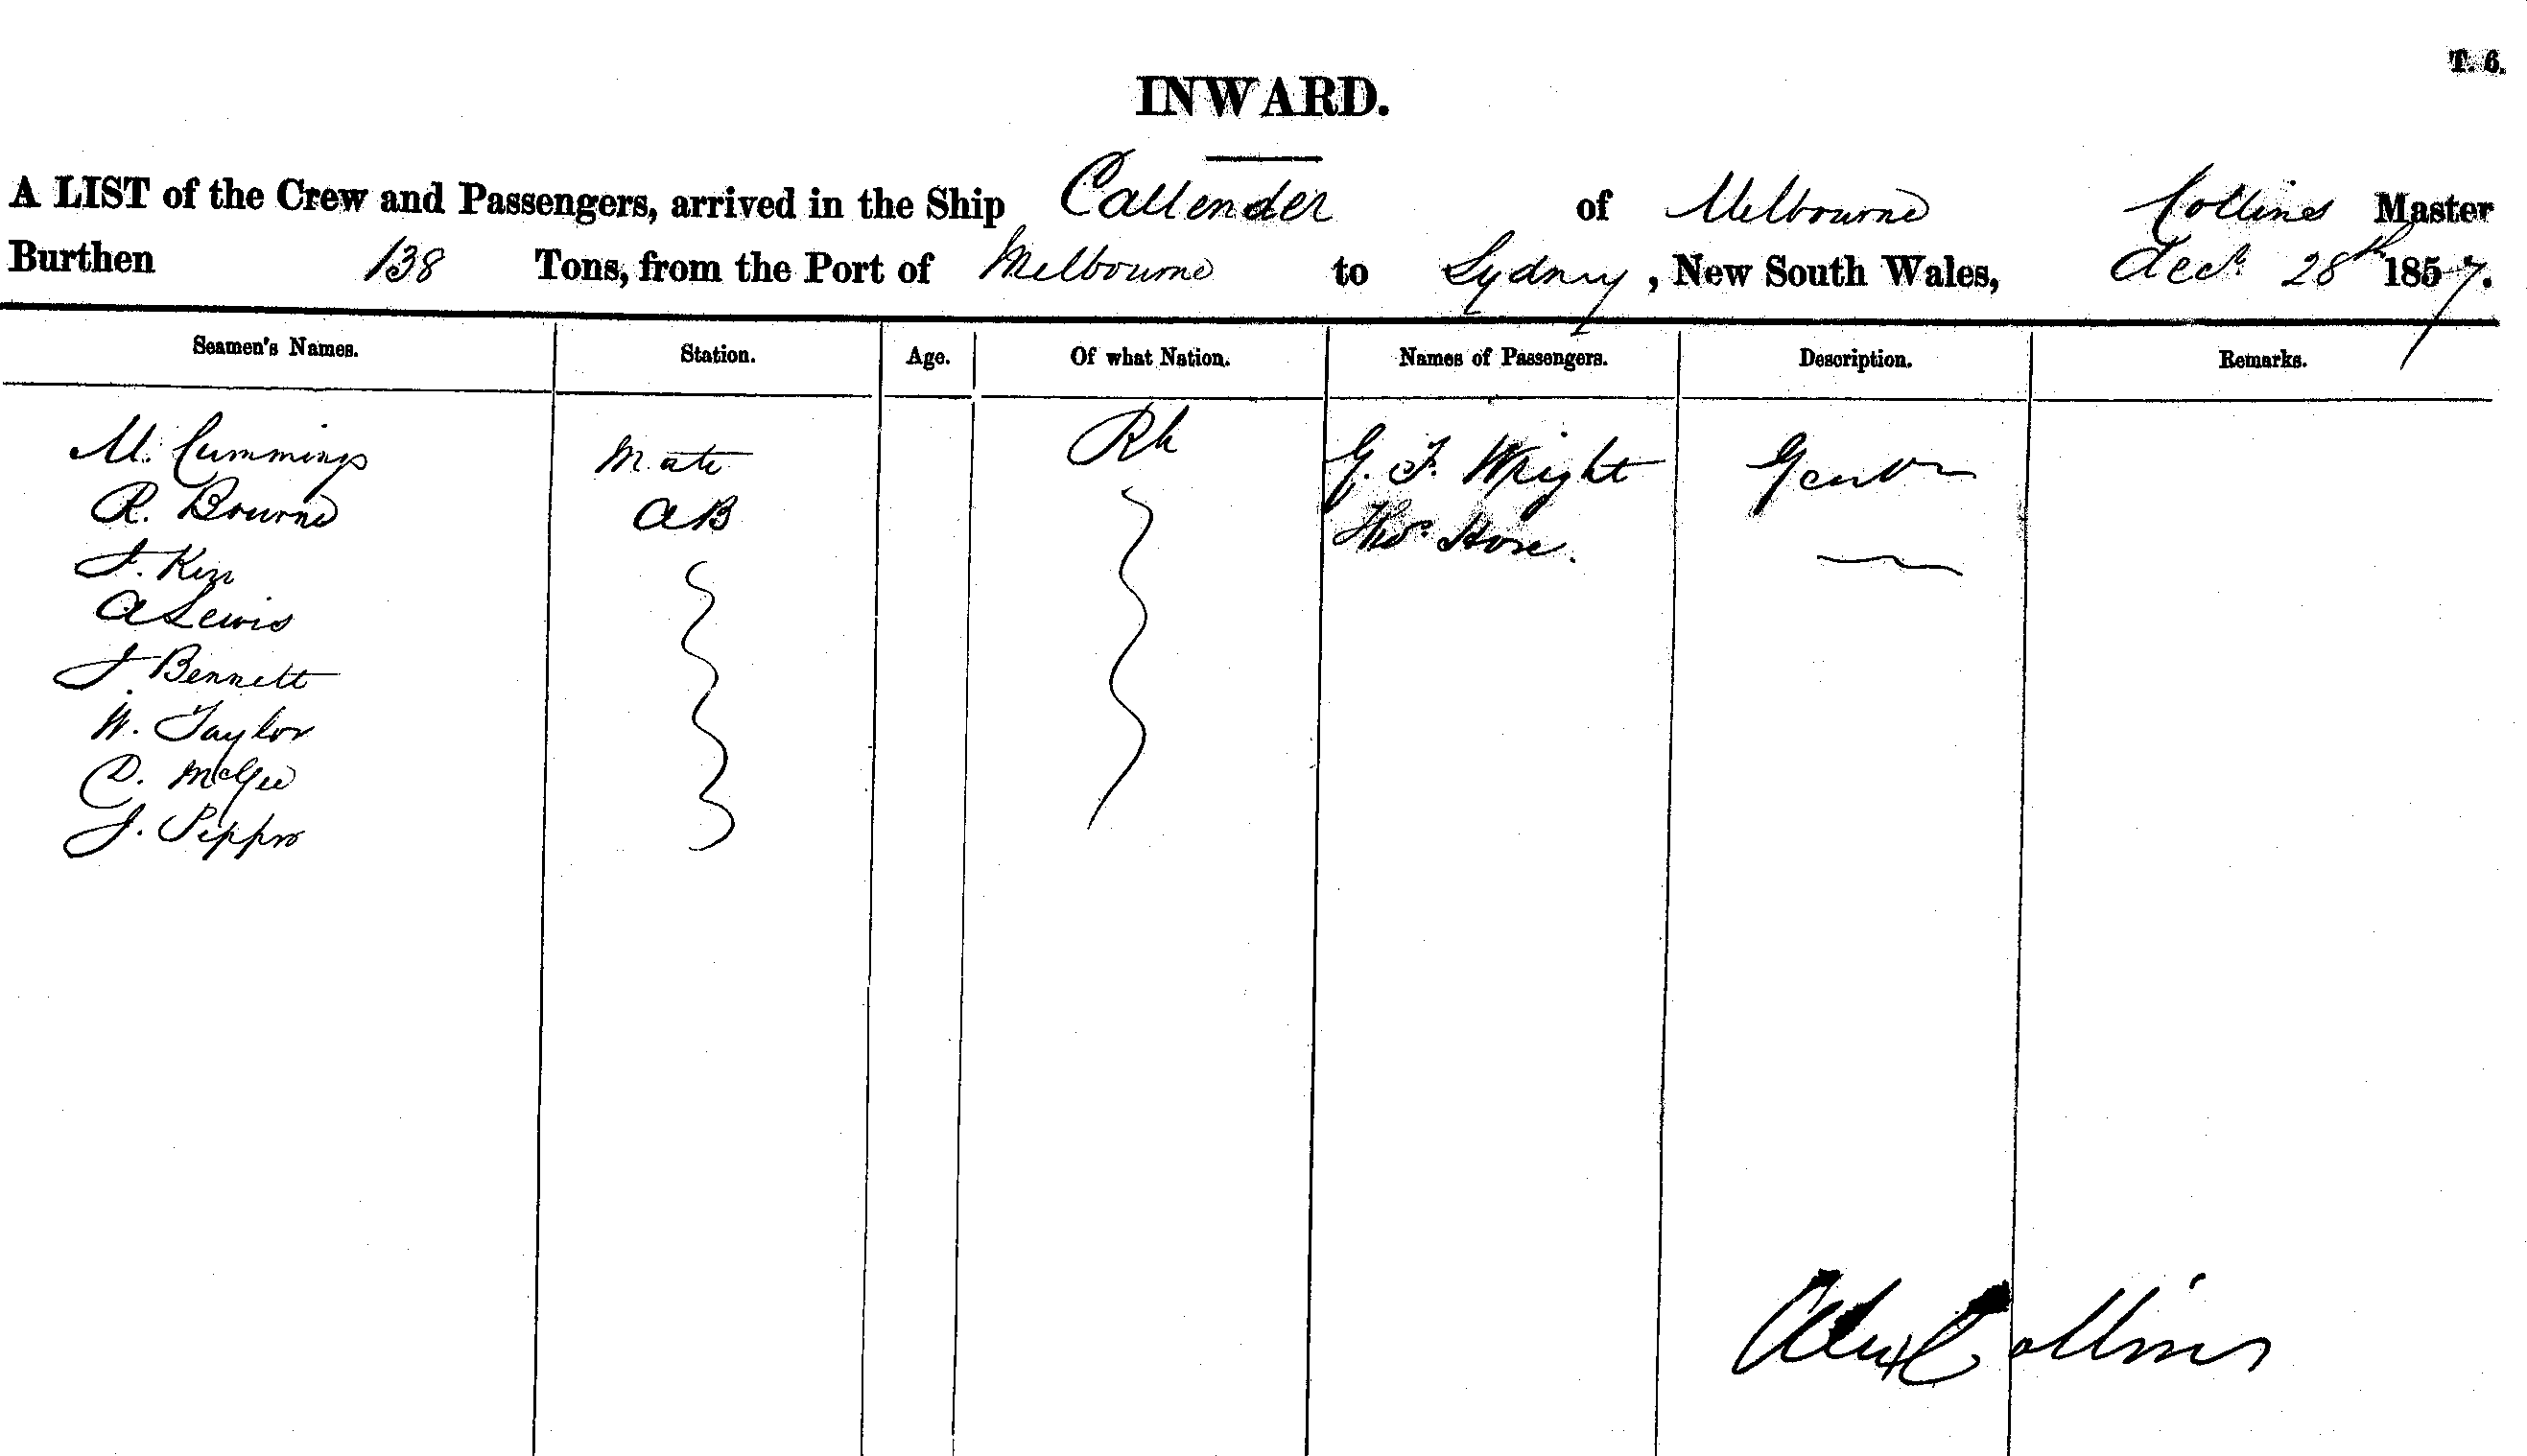 T. 6.
INWARD.
A LIST of the Crew and Passengers, arrived in the Ship Callender of Melbourne Collins Master
Burthen 138 Tons, from the Port of Melbourne to Sydney, New South Wales, Decr 28th 1857.
Seamen's Names. Station. Age. Of what Nation. Names of Passengers. Description. Remarks.
M. Cummings Mate G. F. Wright
R. Bourne AB Thos Hose.
A Lewis
J Bennett
W. Taylor
D. McGee
J.
Alex Collins